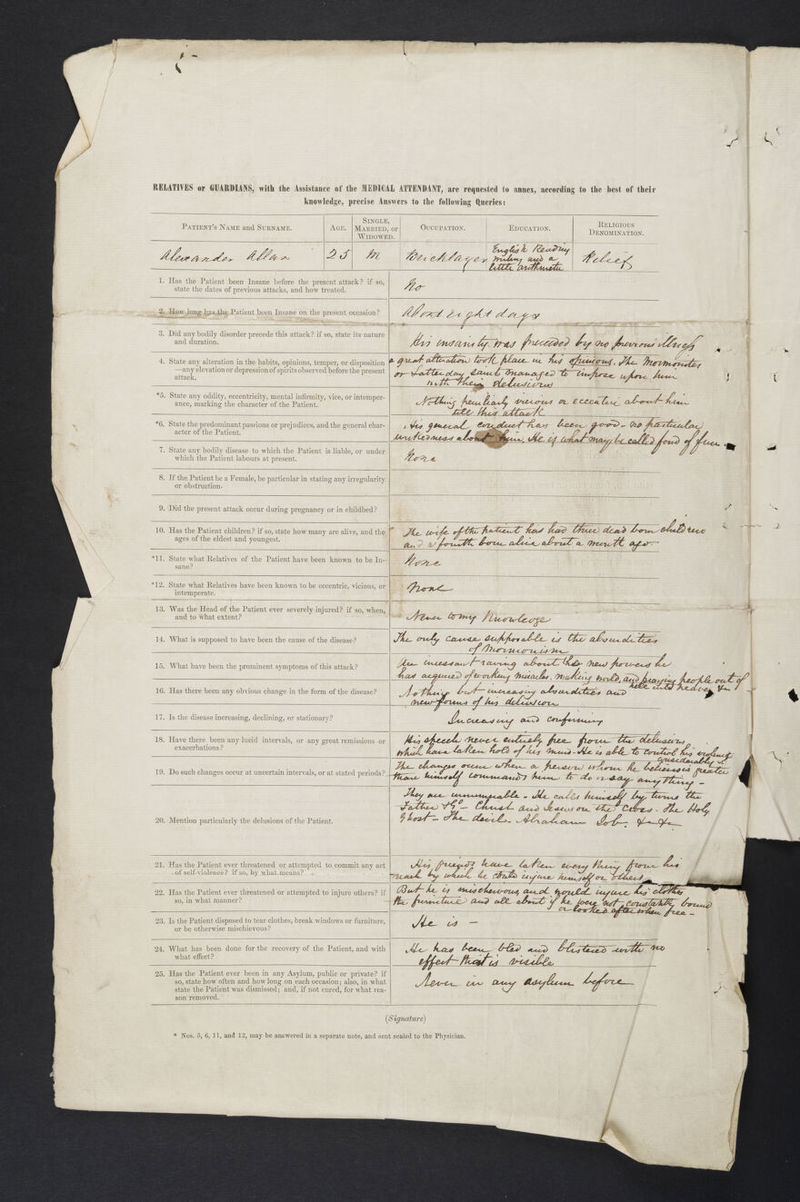 RELATIVES or GUARDIANS, with the Assistance of the MEDICAL ATTENDANT, are requested to annex, according to the best of their
knowledge, precise Answers to the following Queries:
PATIENT'S NAME and SURNAME.
AGE.
SINGLE,
MARRIED, or
WIDOWED.
OCCUPATION.
EDUCATION.
RELIGIOUS
DENOMINATION.
Alexander Allan
25
M
Bricklayer
English Reading
writing and a
little arithmetic
Relief
1. Has the Patient been Insane before the present attack? if so,
state the dates of previous attacks, and how treated.
No
2. How long has the Patient been Insane on the present occasion?
About eight days
3. Did any bodily disorder precede this attack? if so, state its nature
and duration.
His insanity was preceeded by no previous illness
4. State any alteration in the habits, opinions, temper, or disposition
—any elevation or depression of spirits observed before the present
attack.
a great alteration took place in his opinions. The Mormonites
or Latter day Saints managed to impose upon him
with their delusions
*5. State any oddity, eccentricity, mental infirmity, vice, or intemper-
ance, marking the character of the Patient.
Nothing peculiarly vicious or eccentric about him
till this attack
*6. State the predominant passions or prejudices, and the general char-
acter of the Patient.
His general conduct has been good - no particular
wickedness about him. He is what may be called fond of fun
7. State any bodily disease to which the Patient is liable, or under
which the Patient labours at present.
None
8. If the Patient be a Female, be particular in stating any irregularity
or obstruction.
9. Did the present attack occur during pregnancy or in childbed?
10. Has the Patient children? if so, state how many are alive, and the
ages of the eldest and youngest.
The wife of the patient has had three dead born children
and a fourth born alive about a month ago
*11. State what Relatives of the Patient have been known to be In-
sane?
None
*12. State what Relatives have been known to be eccentric, vicious, or
intemperate.
None
13. Was the Head of the Patient ever severely injured? if so, when,
and to what extent?
Never to my knowledge
14. What is supposed to have been the cause of the disease?
The only cause supposable is the absurdities
of Mormonism
15. What have been the prominent symptoms of this attack?
An incessant raving about the new powers he
has acquired of working miracles, making world, and praying people out of
hell into heaven &c
16. Has there been any obvious change in the form of the disease?
Nothing but increasing absurdities and
new forms of his delusion
17. Is the disease increasing, declining, or stationary?
Increasing and confirming
18. Have there been any lucid intervals, or any great remissions or
exacerbations?
His speech never entirely free from the delusions
which have taken hold of his mind. He is able to control his violence
considerably
19. Do such changes occur at uncertain intervals, or at stated periods?
The changes occur when a person whom he believes is greater
than himself commands him to do or say anything -
20. Mention particularly the delusions of the Patient.
They are innumerable - He calls himself by turns the
Father & - Christ and Jesus on the Cross. The Holy
Ghost - The devil - Abraham Job, &c &c
21. Has the Patient ever threatened or attempted to commit any act
of self-violence? if so, by what means?
His friends have taken every thing from his
reach by which he could injure himself or others
22. Has the Patient ever threatened or attempted to injure others? if
so, in what manner?
But he is mischevous and would injure his clothes
the furniture and all about if he were not constantly bound
or looked after when free -
23. Is the Patient disposed to tear clothes, break windows or furniture,
or be otherwise mischievous?
He is -
24. What has been done for the recovery of the Patient, and with
what effect?
He has been bled and blistered with no
effect that is visible
25. Has the Patient ever been in any Asylum, public or private? if
so, state how often and how long on each occasion; also, in what
state the Patient was dismissed; and, if not cured, for what rea-
son removed.
Never in any asylum before
(Signature)
* Nos. 5, 6, 11, and 12, may be answered in a separate note, and sent sealed to the Physician.